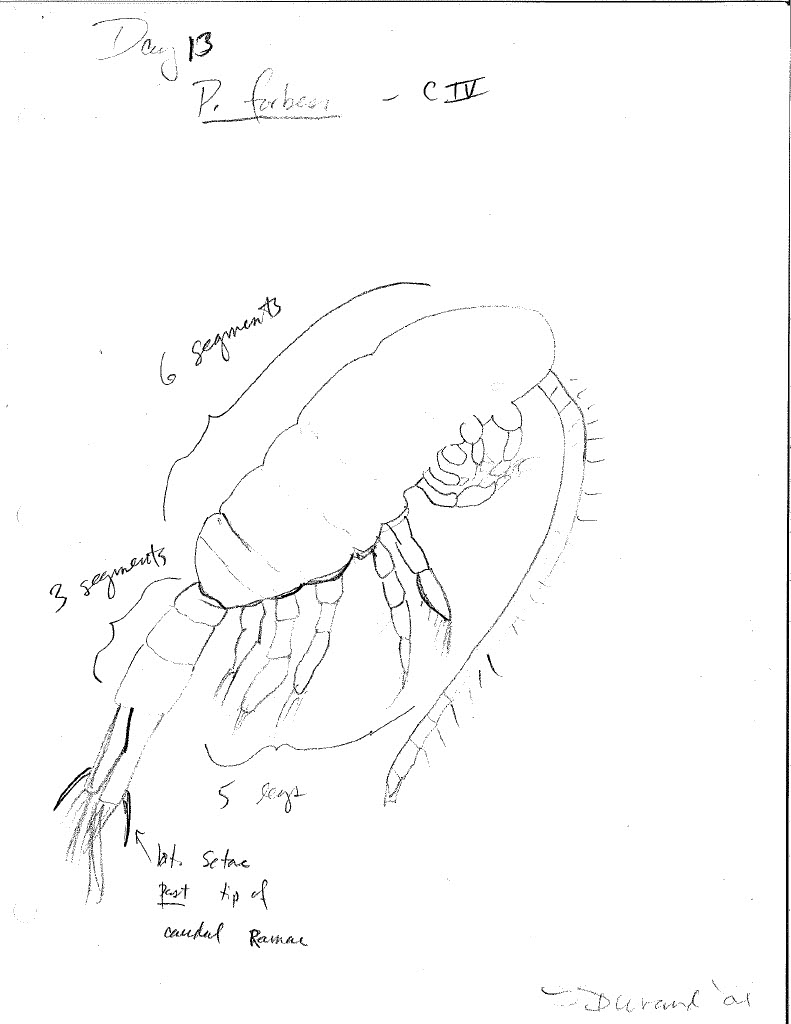 Day 13
P. forbesi - C IV
6 segments
3 segments
5 legs
lat. setae
past tip of
caudal Ramae
Durand '01